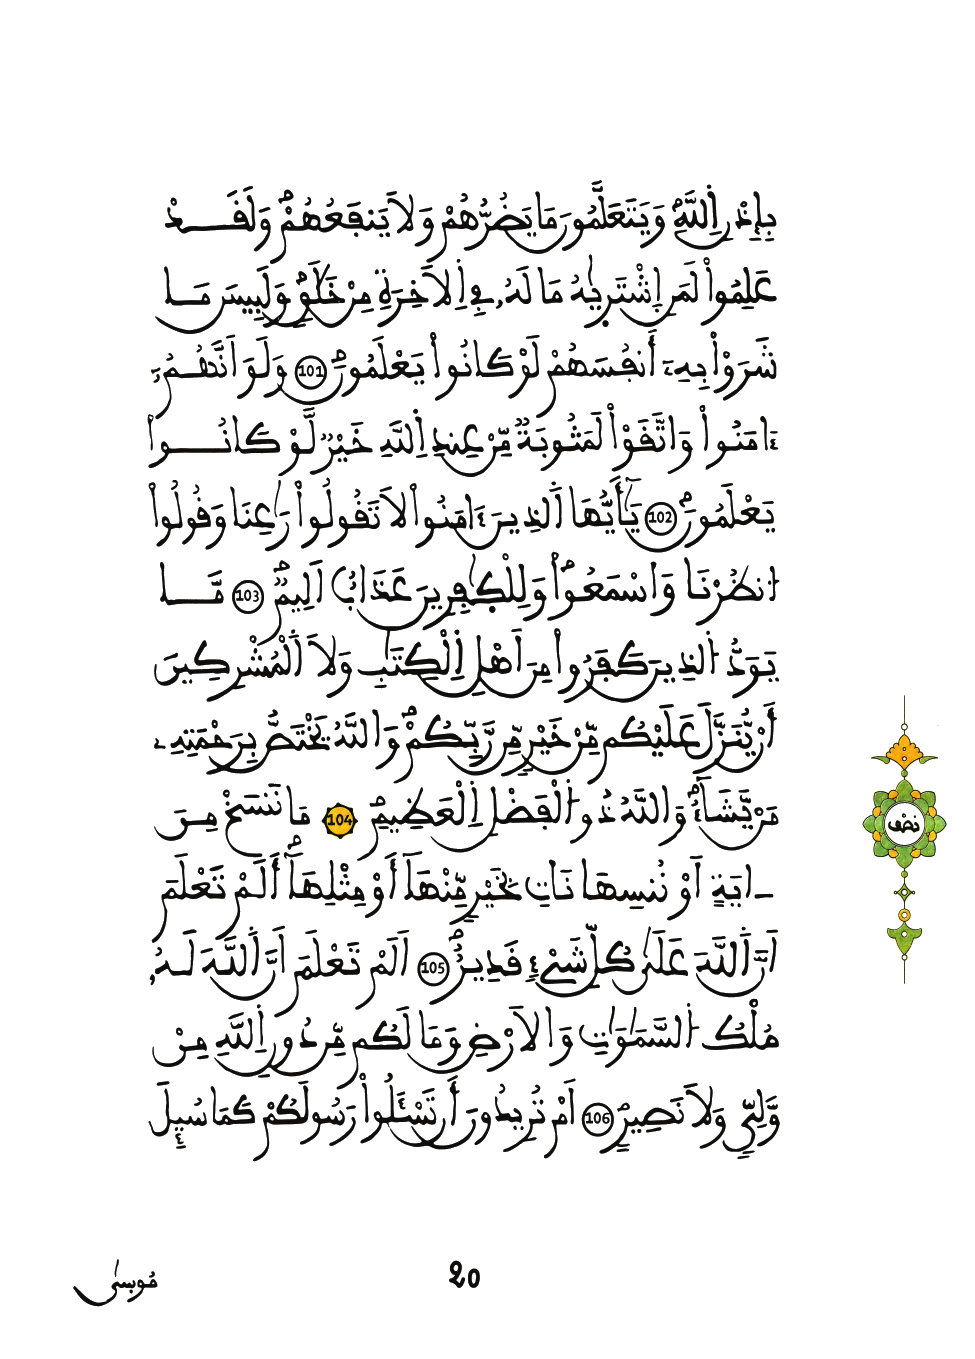 بِإِذْنِ اِ۬للَّهِۖ وَيَتَعَلَّمُونَ مَا يَضُرُّهُمْ وَلَا يَنفَعُهُمْۖ وَلَقَدْ
عَلِمُواْ لَمَنِ اِ۪شْتَر۪يٰهُ مَا لَهُۥ فِے اِ۬لَاخِرَةِ مِنْ خَلَٰقٖۖ وَلَبِيسَ مَا
شَرَوْاْ بِهِۦٓ أَنفُسَهُمْ لَوْ كَانُواْ يَعْلَمُونَۖ 101 وَلَوَ اَنَّهُمُۥٓ
ءَامَنُواْ وَاتَّقَوْاْ لَمَثُوبَةٞ مِّنْ عِندِ اِ۬للَّهِ خَيْرٞ لَّوْ كَانُواْ
يَعْلَمُونَۖ 102 يَٰٓأَيُّهَا اَ۬لذِينَ ءَامَنُواْ لَا تَقُولُواْ رَٰعِنَا وَقُولُواْ
اُ۟نظُرْنَا وَاسْمَعُواْۖ وَلِلْكٰ۪فِرِينَ عَذَابٌ اَلِيمٞۖ 103 مَّا
يَوَدُّ اُ۬لذِينَ كَفَرُواْ مِنَ اَهْلِ اِ۬لْكِتَٰبِ وَلَا اَ۬لْمُشْرِكِينَ
أَنْ يُّنَزَّلَ عَلَيْكُم مِّنْ خَيْرٖ مِّن رَّبِّكُمْۖ وَاللَّهُ يَخْتَصُّ بِرَحْمَتِهِۦ
مَنْ يَّشَآءُۖ وَاللَّهُ ذُو اُ۬لْفَضْلِ اِ۬لْعَظِيمِۖ 104 مَا نَنسَخْ مِنَ
اٰيَةٍ اَوْ نُنسِهَا نَاتِ بِخَيْرٖ مِّنْهَآ أَوْ مِثْلِهَآۖ أَلَمْ تَعْلَمَ
اَنَّ اَ۬للَّهَ عَلَىٰ كُلِّ شَےْءٖ قَدِيرٌۖ 105 اَلَمْ تَعْلَمَ اَنَّ اَ۬للَّهَ لَهُۥ
مُلْكُ اُ۬لسَّمَٰوَٰتِ وَالَارْضِ وَمَا لَكُم مِّن دُونِ اِ۬للَّهِ مِنْ
وَّلِيّٖ وَلَا نَصِيرٍۖ 106 اَمْ تُرِيدُونَ أَن تَسْـَٔلُواْ رَسُولَكُمْ كَمَا سُئِلَ
نصف
مُوسىٰ
20